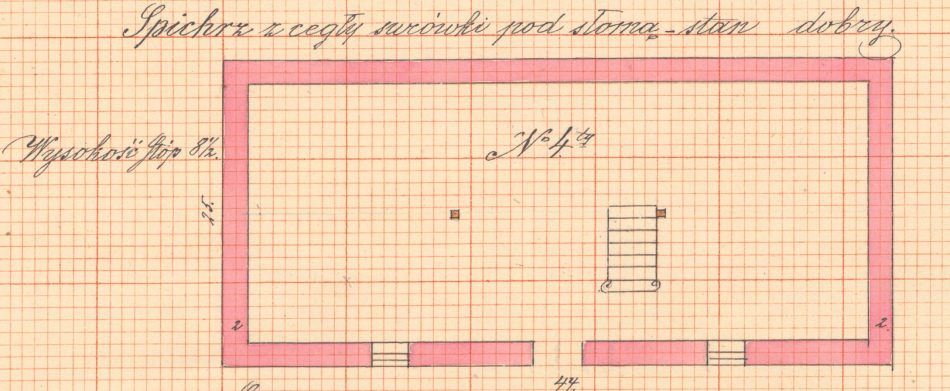 Spichrz z cegły surówki pod słomą - stan dobry.
Wysokość stóp 8½.
No 4ty
25.
2
2.
44.